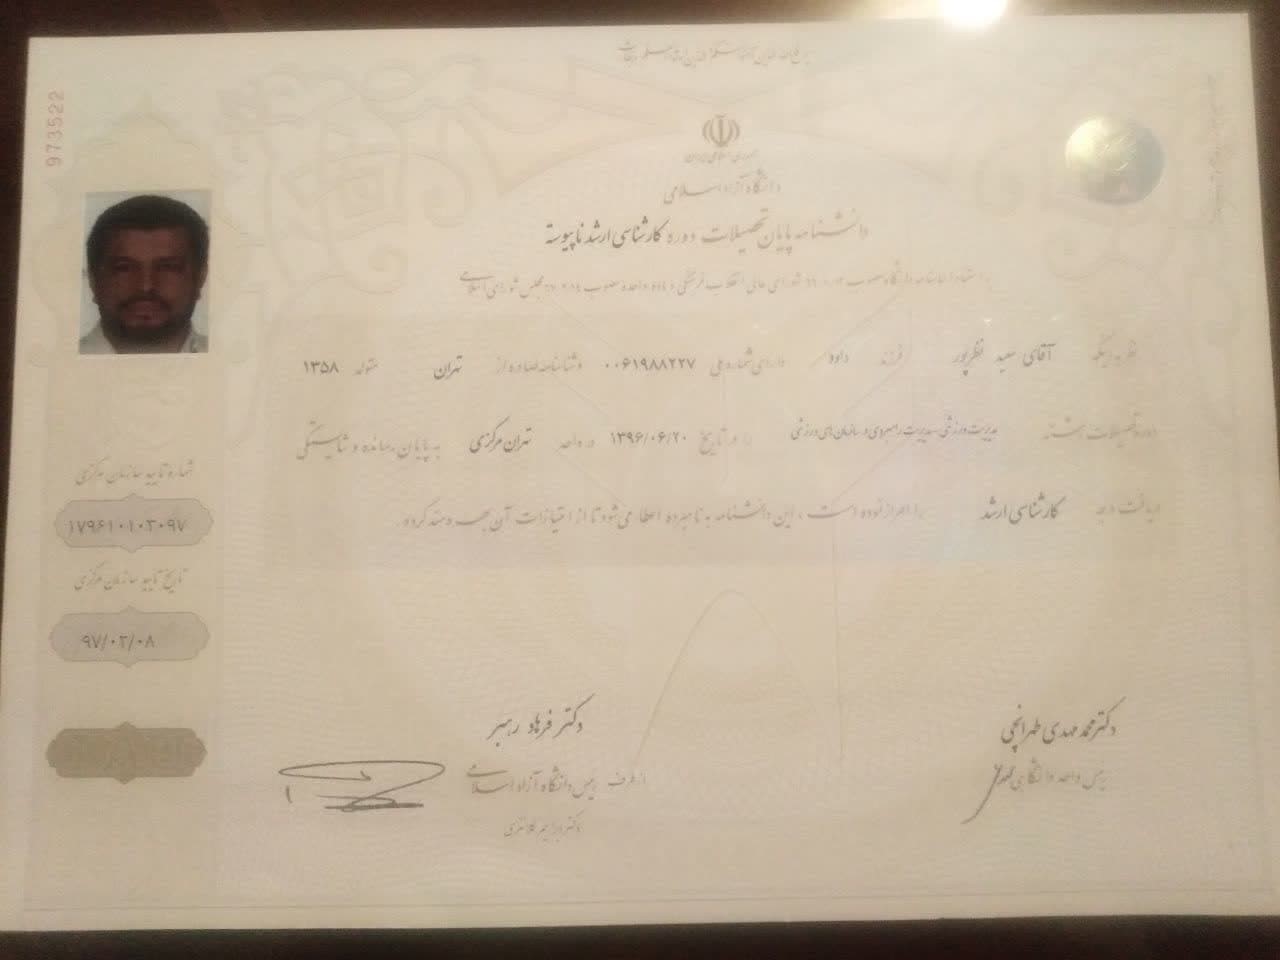 973522
جمهوری اسلامی ایران
دانشگاه آزاد اسلامی
دانشنامه پایان تحصیلات دوره کارشناسی ارشد ناپیوسته
شورای عالی انقلاب فرهنگی و ماده واحده مصوب مجلس شورای اسلامی
نظر به اینکه آقای سعید نظرپور فرزند داود دارای شماره ملی ۰۰۶۱۹۸۸۲۲۷ و شناسنامه صادره از تهران متولد ۱۳۵۸
دوره تحصیلات رشته مدیریت ورزشی-مدیریت راهبردی در سازمان های ورزشی را در تاریخ ۱۳۹۶/۰۶/۲۰ در واحد تهران مرکزی به پایان رسانده و شایستگی
دریافت درجه کارشناسی ارشد را احراز نموده است ، این دانشنامه به نامبرده اعطا می‌شود تا از امتیازات آن بهره مند گردد.
شماره تایید سازمان مرکزی
۱۷۹۶۱۰۱۰۳۰۹۷
تاریخ تایید سازمان مرکزی
۹۷/۰۲/۰۸
دکتر محمد مهدی طهرانچی
رئیس واحد دانشگاهی
دکتر فرهاد رهبر
از طرف رئیس دانشگاه آزاد اسلامی